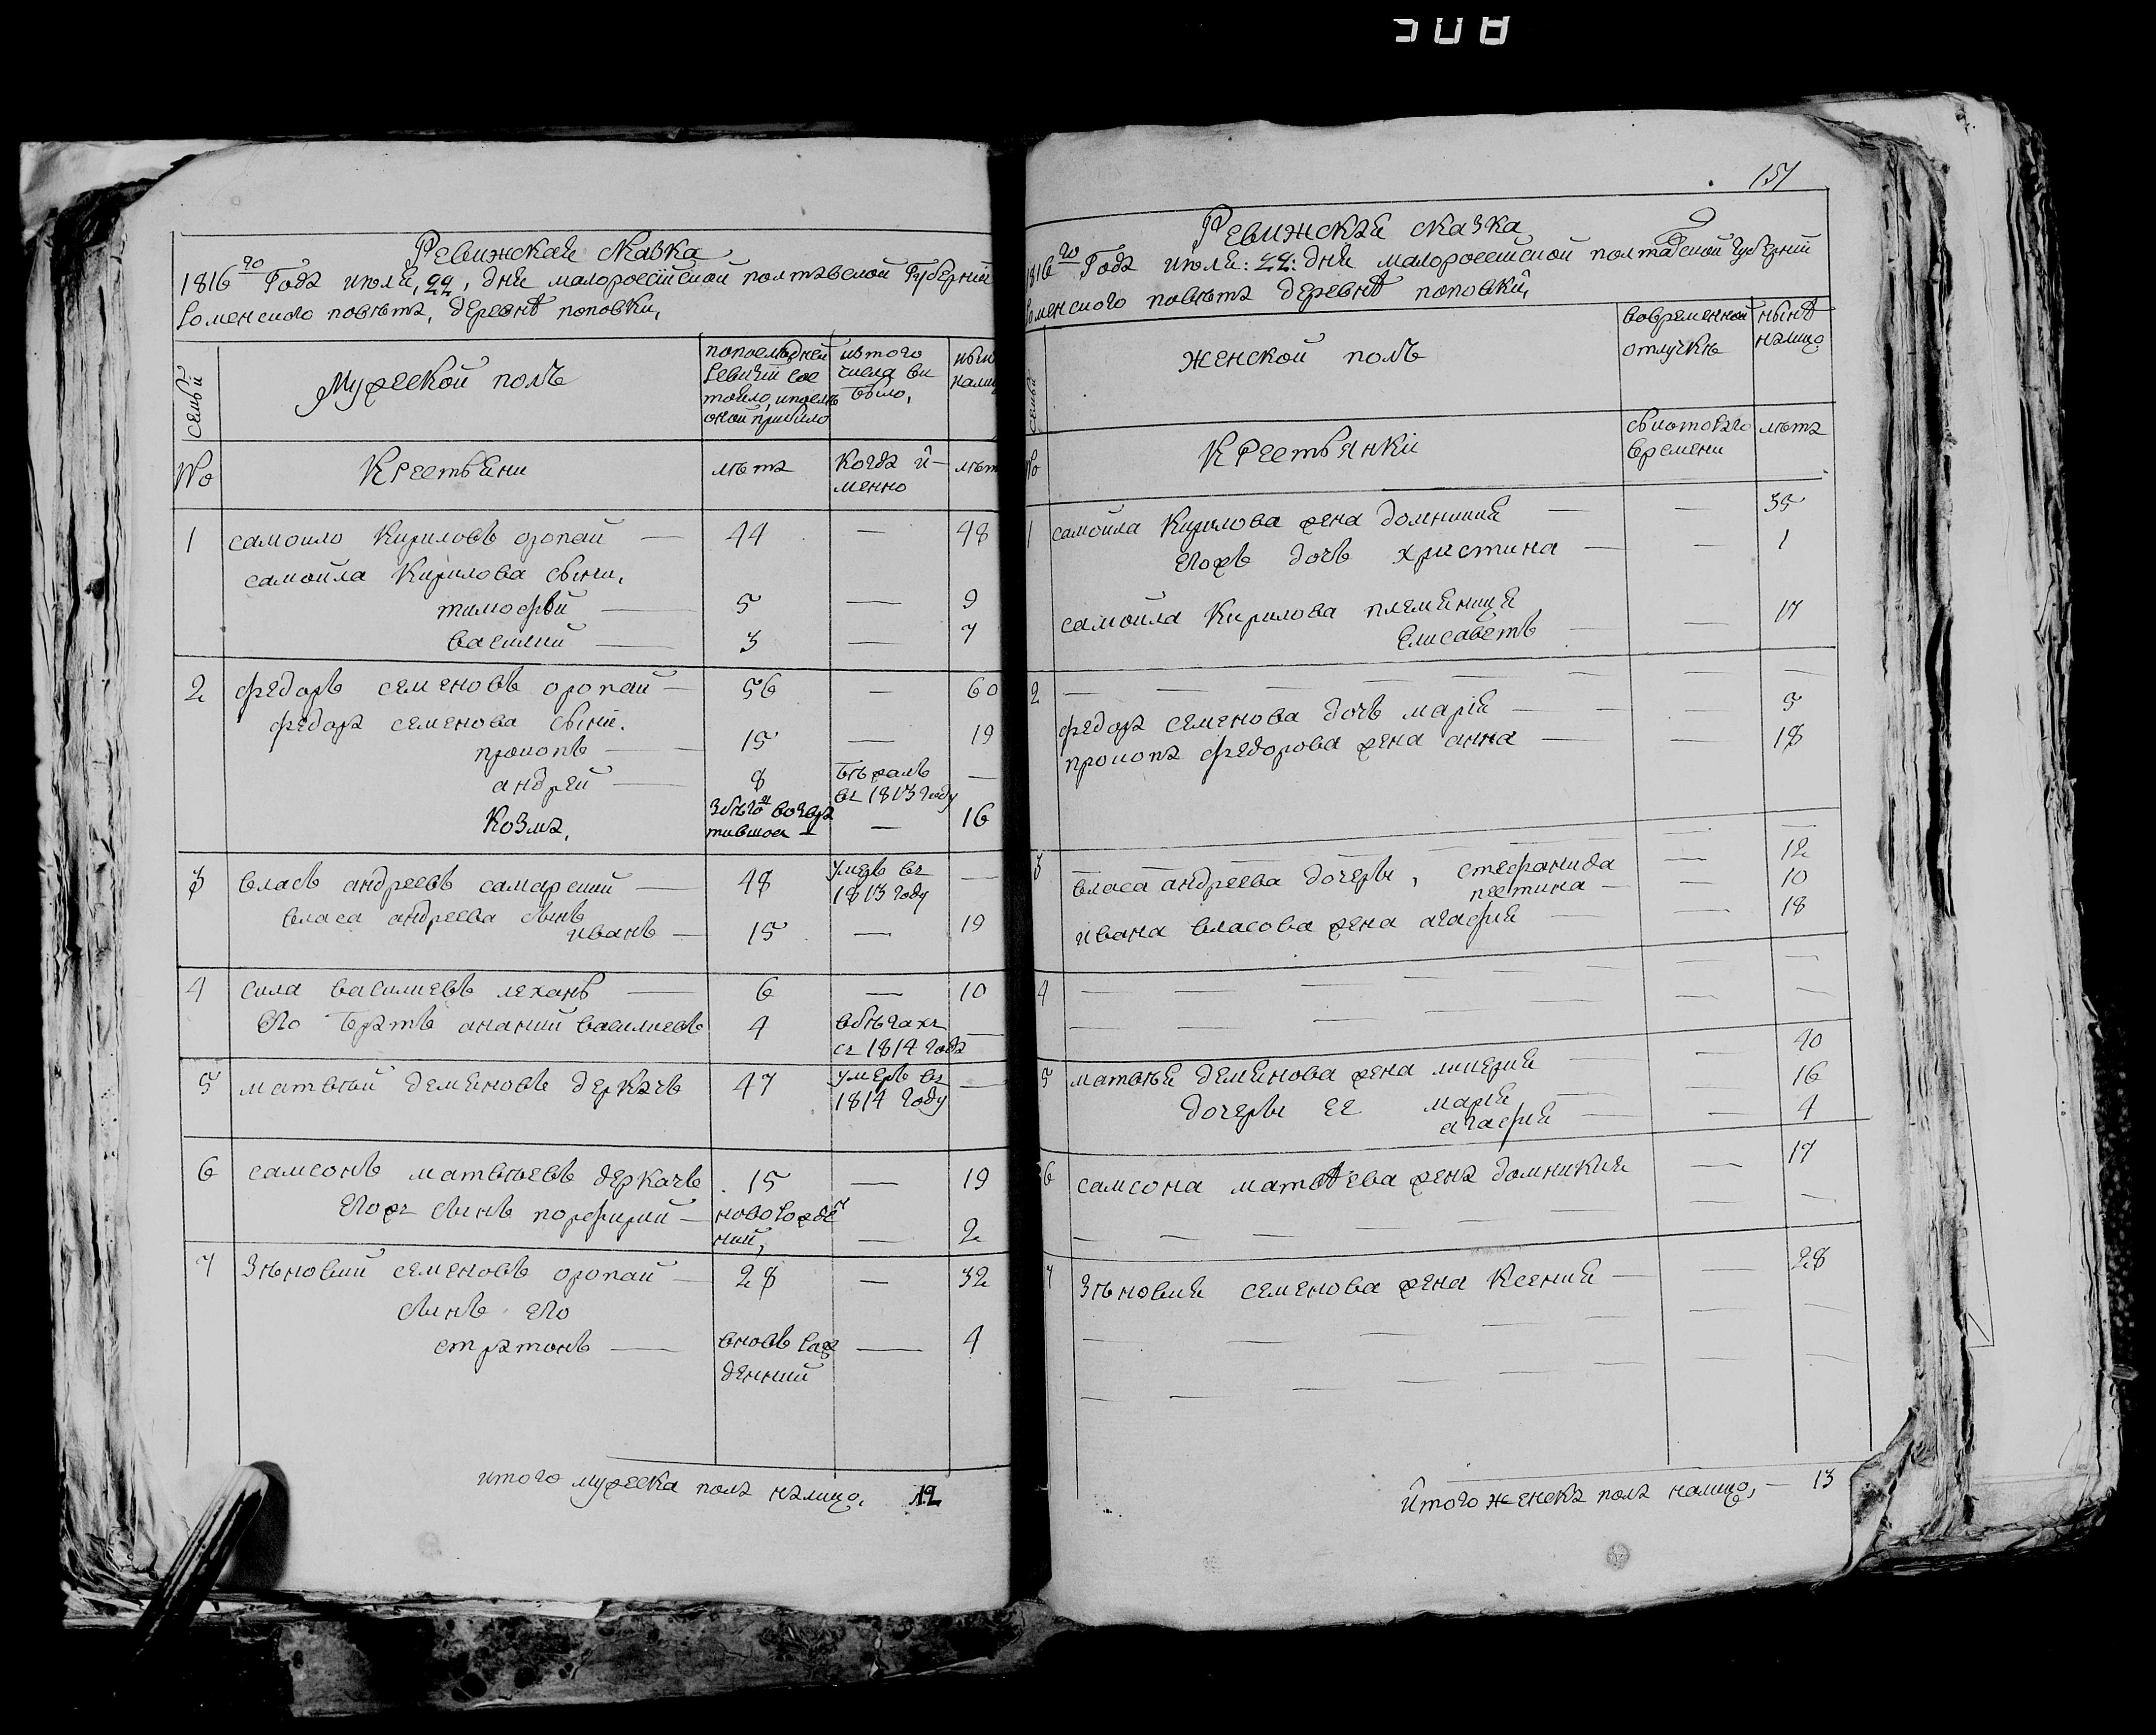 508
Ревижская сказка
1816го Года июля, 22, дня малороссійской полтавской Губерніи
роменского повѣта, деревнѣ поповки,
семьи
Мужеской полъ
попоследней ревизіи состояло, ипослѣ оной прибило
изтого числа выбыло,
нынѣ налицо
№
Крестьяни
лѣта
Когда именно
лѣта
1 самоило Кириловъ оропай — 44 — 48
самойла Кирилова сыни,
тимофѣй — 5 — 9
василий — 3 — 7
2 федоръ семеновъ оропай — 56 — 60
федора семенова сыни.
прокопъ — 15 — 19
андрей — 8 бѣжалъ въ 1813 году —
Козма, збѣгов возвратившся — — 16
3 власъ андреевъ самарский — 48 умеръ въ 1813 году —
власа андреева сынъ
иванъ — 15 — 19
4 сила василиевъ леханъ — 6 — 10
Его братъ ананий василиевъ 4 вбѣгахъ съ 1814 года —
5 матвѣй демяновъ деркачъ 47 умеръ въ 1814 году —
6 самсонъ матвѣевъ деркачъ 15 — 19
Егожъ сынъ порфирий — новорожденний, — 2
7 Зѣновий семеновъ оропай — 28 — 32
сынъ его
стратонъ — вновъ рожденний — 4
итого мужеска пола налицо, 12
151
Ревижская сказка
1816го Года июля: 22: дня малороссийской полтавской Губерний
роменского повѣта деревнѣ поповки,
семьи
женской полъ
вовременной отлучкѣ
нынѣ налицо
№
Крестьянки
съкотораго времени
лѣта
1 самойла Кирилова жена домникия — — 35
Егожъ дочь христина — — 1
самойла Кирилова племяница
Елисаветъ — — 17
2 — — — — — — —
федора семенова дочь марія — — 5
прокопа федорова жена анна — — 18
3 — — — — — — —
власа андреева дочеры, стефанида — 12
пестина — — 10
ивана власова жена агафия — — 18
4 — — — — — —
— — — — — —
5 матвѣя демянова жена ликерия — — 40
дочеры ее мария — — 16
агафия — — 4
6 самсона матвѣева жена домникия — 17
— — — — — — —
7 Зѣновия семенова жена Ксения — — 28
— — — — — —
— — — — — —
Итого женска пола налицо, — 13